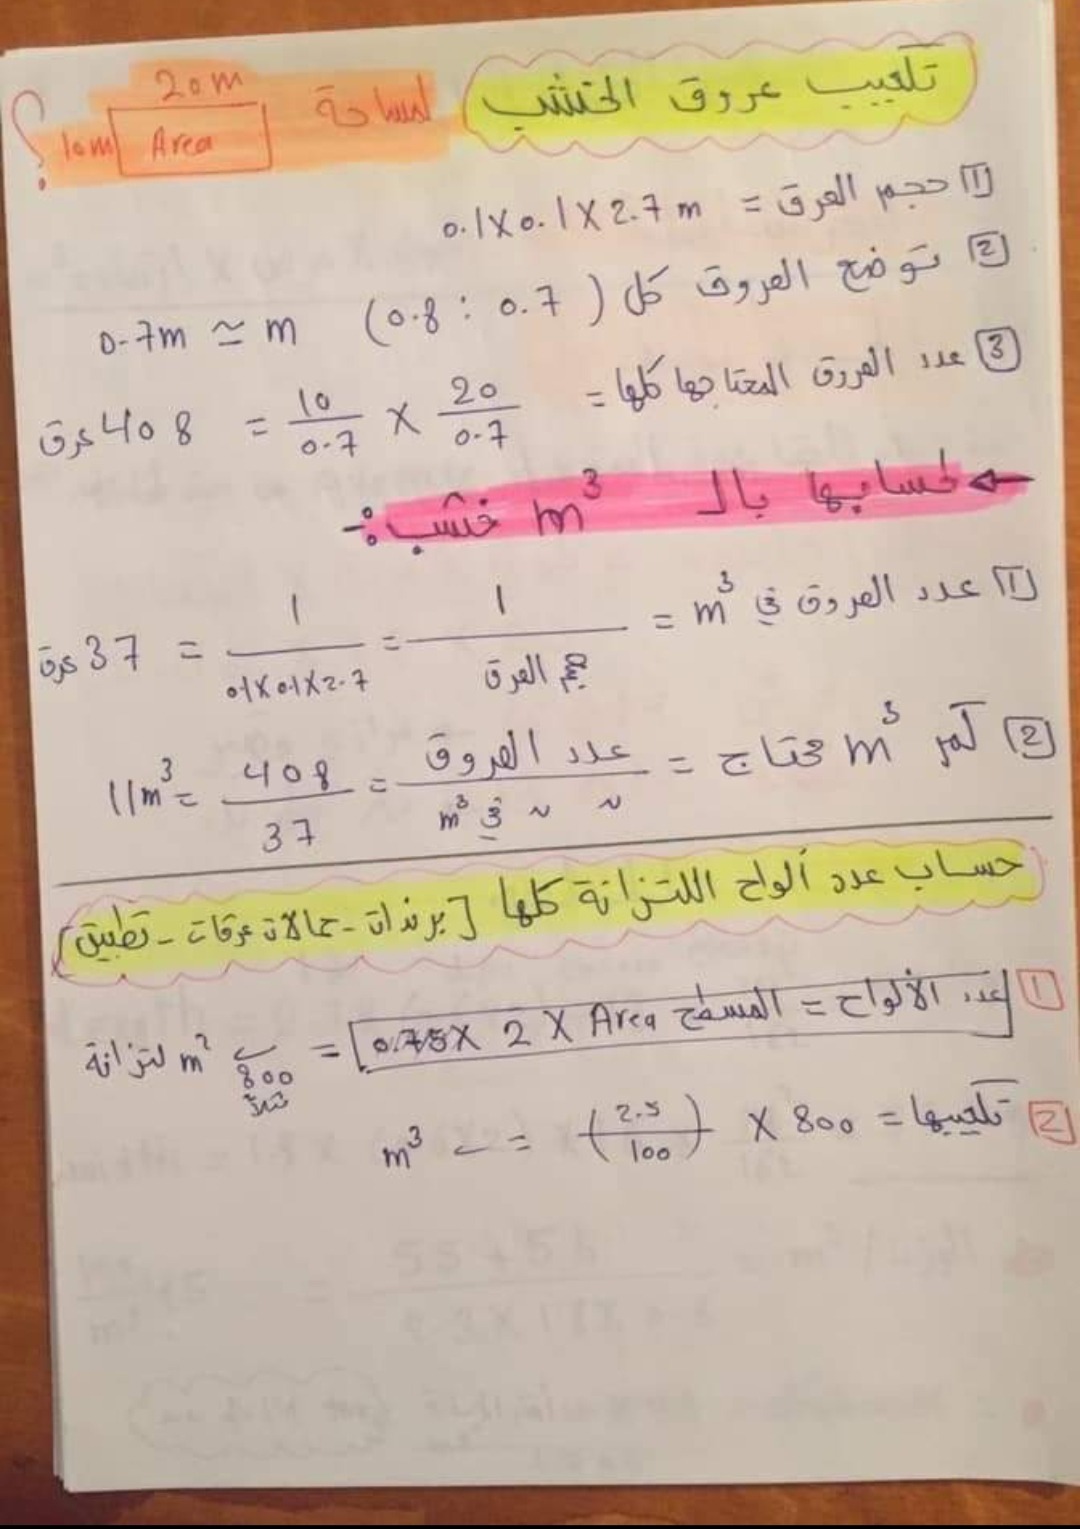 تكعيب عروق الخشب لمساحة
20m
10m Area ؟
1 حجم العرق = 0.1X0.1X2.7m
2 توضع العروق كل (0.7 : 0.8) m ≃ 0.7m
3 عدد العروق المحتاجها كلها = 20/0.7 X 10/0.7 = 408 عرق
← لحسابها بالـ m³ خشب :-
1 عدد العروق في m³ = 1/حجم العرق = 1/0.1X0.1X2.7 = 37 عرق
2 كم m³ محتاج = عدد العروق/~ ~ في m³ = 408/37 = 11m³
حساب عدد ألواح اللتزانة كلها [برندات - حمالات عرقات - تطبيق]
1 عدد الألواح = المسطح Area X 2 X 0.75 = 800 m² لتزانة
2 تكعيبها = 800 X (2.5/100) = m³